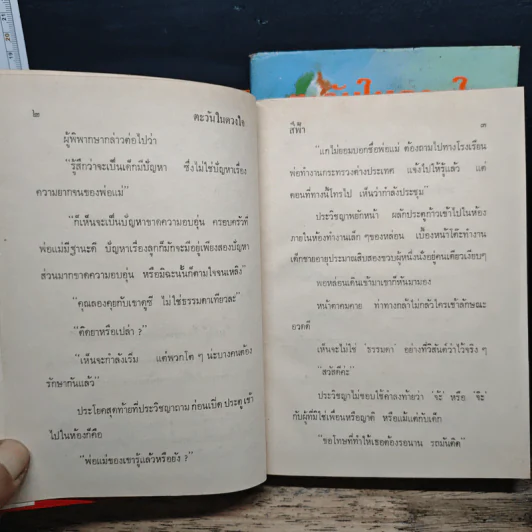 ๒ ตะวันในดวงใจ
ผู้พิพากษากล่าวต่อไปว่า
“รู้สึกว่าจะเป็นเด็กมีปัญหา ซึ่งไม่ใช่ปัญหาเรื่อง
ความยากจนของพ่อแม่”
“ก็เห็นจะเป็นปัญหาขาดความอบอุ่น ครอบครัวที่
พ่อแม่มีฐานะดี ปัญหาเรื่องลูกก็มักจะมีอยู่เพียงสองปัญหา
ส่วนมากขาดความอบอุ่น หรือมิฉะนั้นก็ตามใจจนเหลิง”
“คุณลองคุยกับเขาดูซี ไม่ใช่ธรรมดาเทียวละ”
“ติดยาหรือเปล่า ?”
“เห็นจะกำลังเริ่ม แต่พวกโต ๆ น่ะบางคนต้อง
รักษากันแล้ว”
ประโยคสุดท้ายที่ประวิชญาถาม ก่อนเปิดประตูเข้า
ไปในห้องก็คือ
“พ่อแม่ของเขารู้แล้วหรือยัง ?”
สีฟ้า ๓
“แกไม่ยอมบอกชื่อพ่อแม่ ต้องถามไปทางโรงเรียน
พ่อทำงานกระทรวงต่างประเทศ แจ้งไปให้รู้แล้ว แต่
ตอนที่ทางนี้โทรไป เห็นว่ากำลังประชุม”
ประวิชญาพยักหน้า ผลักประตูก้าวเข้าไปในห้อง
ภายในห้องทำงานเล็ก ๆ ของหล่อน เบื้องหน้าโต๊ะทำงาน
เด็กชายอายุประมาณสิบสองขวบผู้หนึ่งนั่งอยู่คนเดียวเงียบๆ
พอหล่อนเดินเข้ามาเขาก็หันมามอง
หน้าตาคมคาย ท่าทางกล้าไม่กลัวใครเข้าลักษณะ
อวดดี
เห็นจะไม่ใช่ ‘ธรรมดา’ อย่างที่วิสันต์ว่าไว้จริง ๆ
“สวัสดีค่ะ”
ประวิชญาไม่ชอบใช้คำลงท้ายว่า ‘จ้ะ’ หรือ ‘จ๊ะ’
กับผู้ที่มิใช่เพื่อนหรือญาติ หรือแม้แต่กับเด็ก
“ขอโทษที่ทำให้เธอต้องรอนาน รถมันติด”